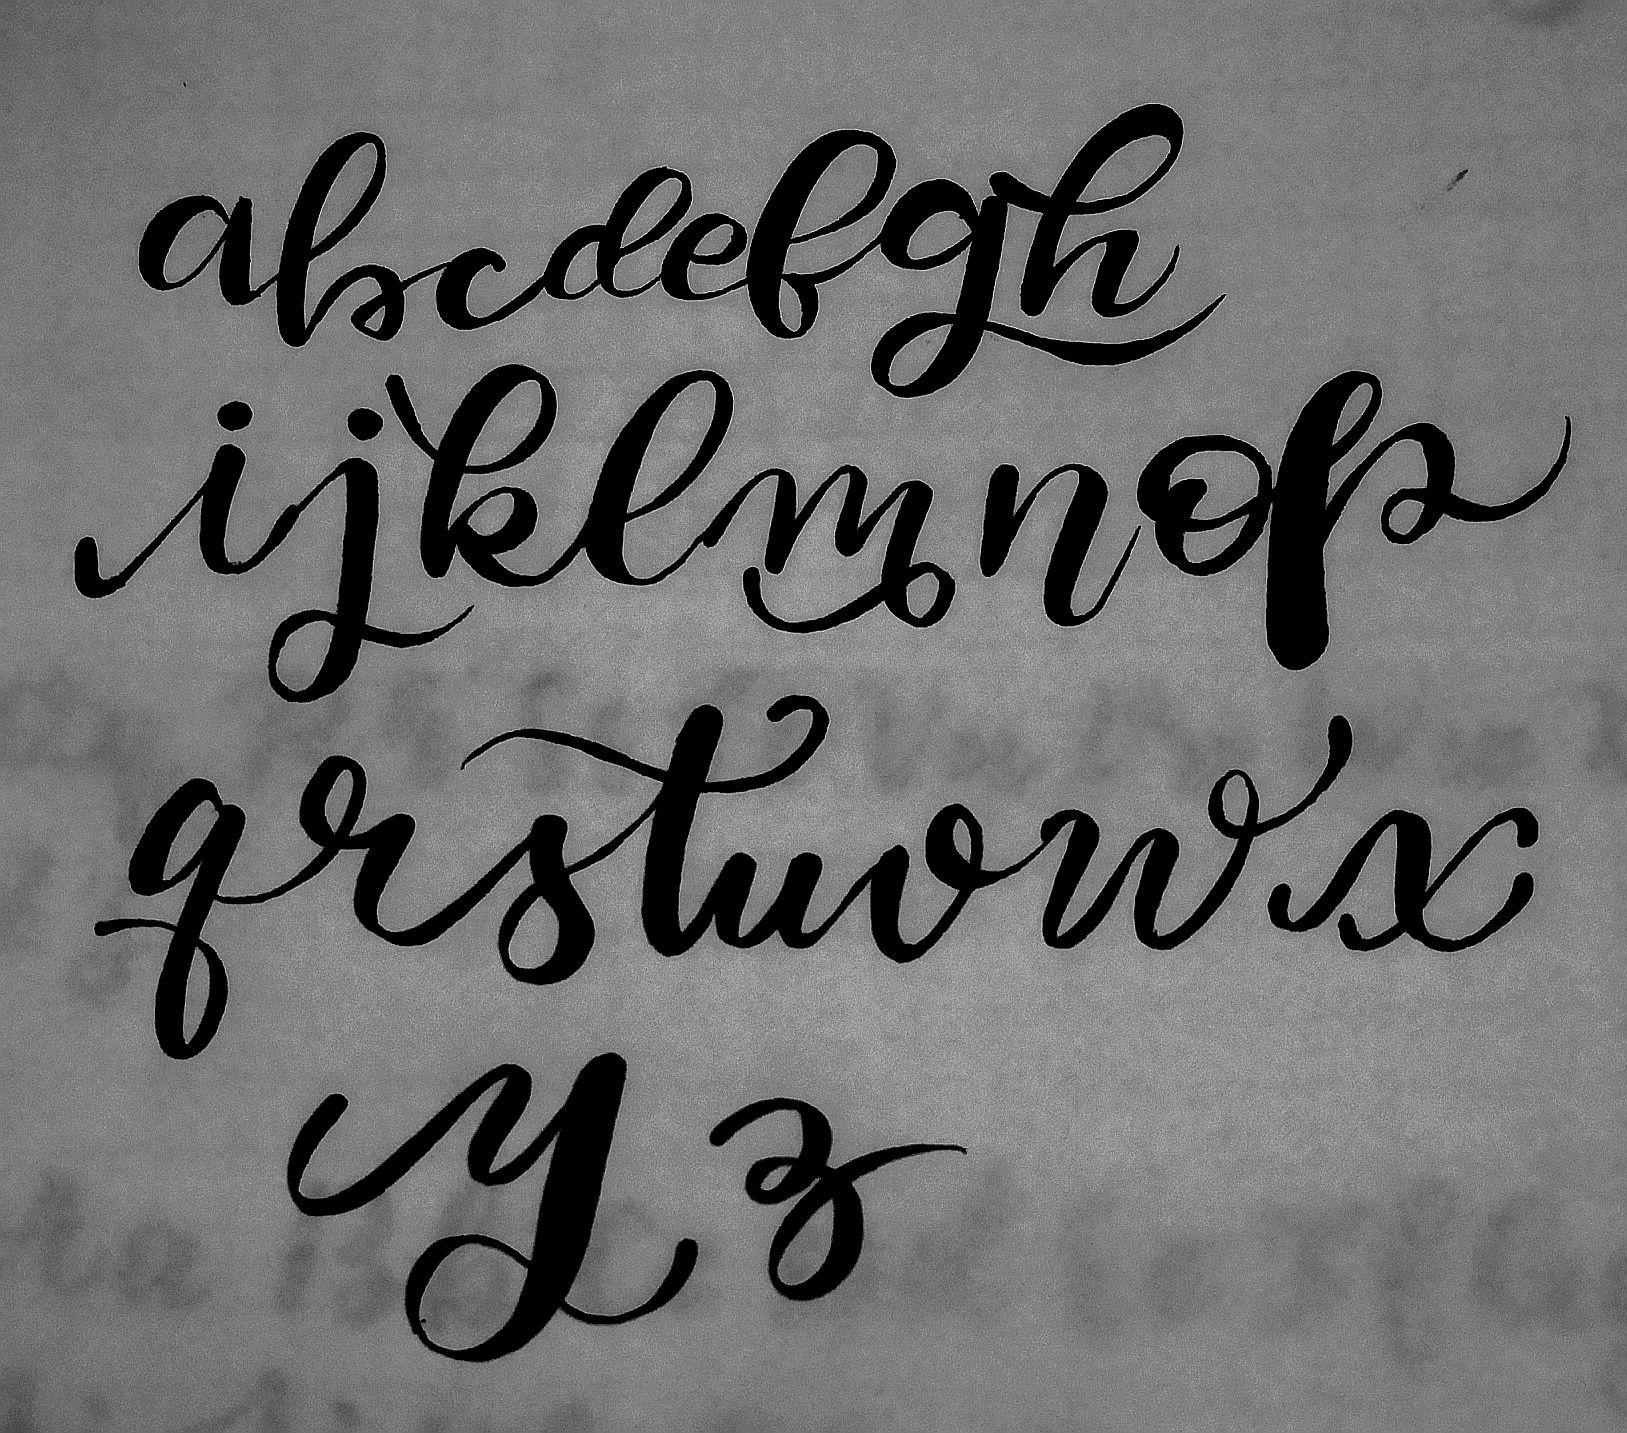 abcdefgh
ijklmnop
qrstuvwx
yz